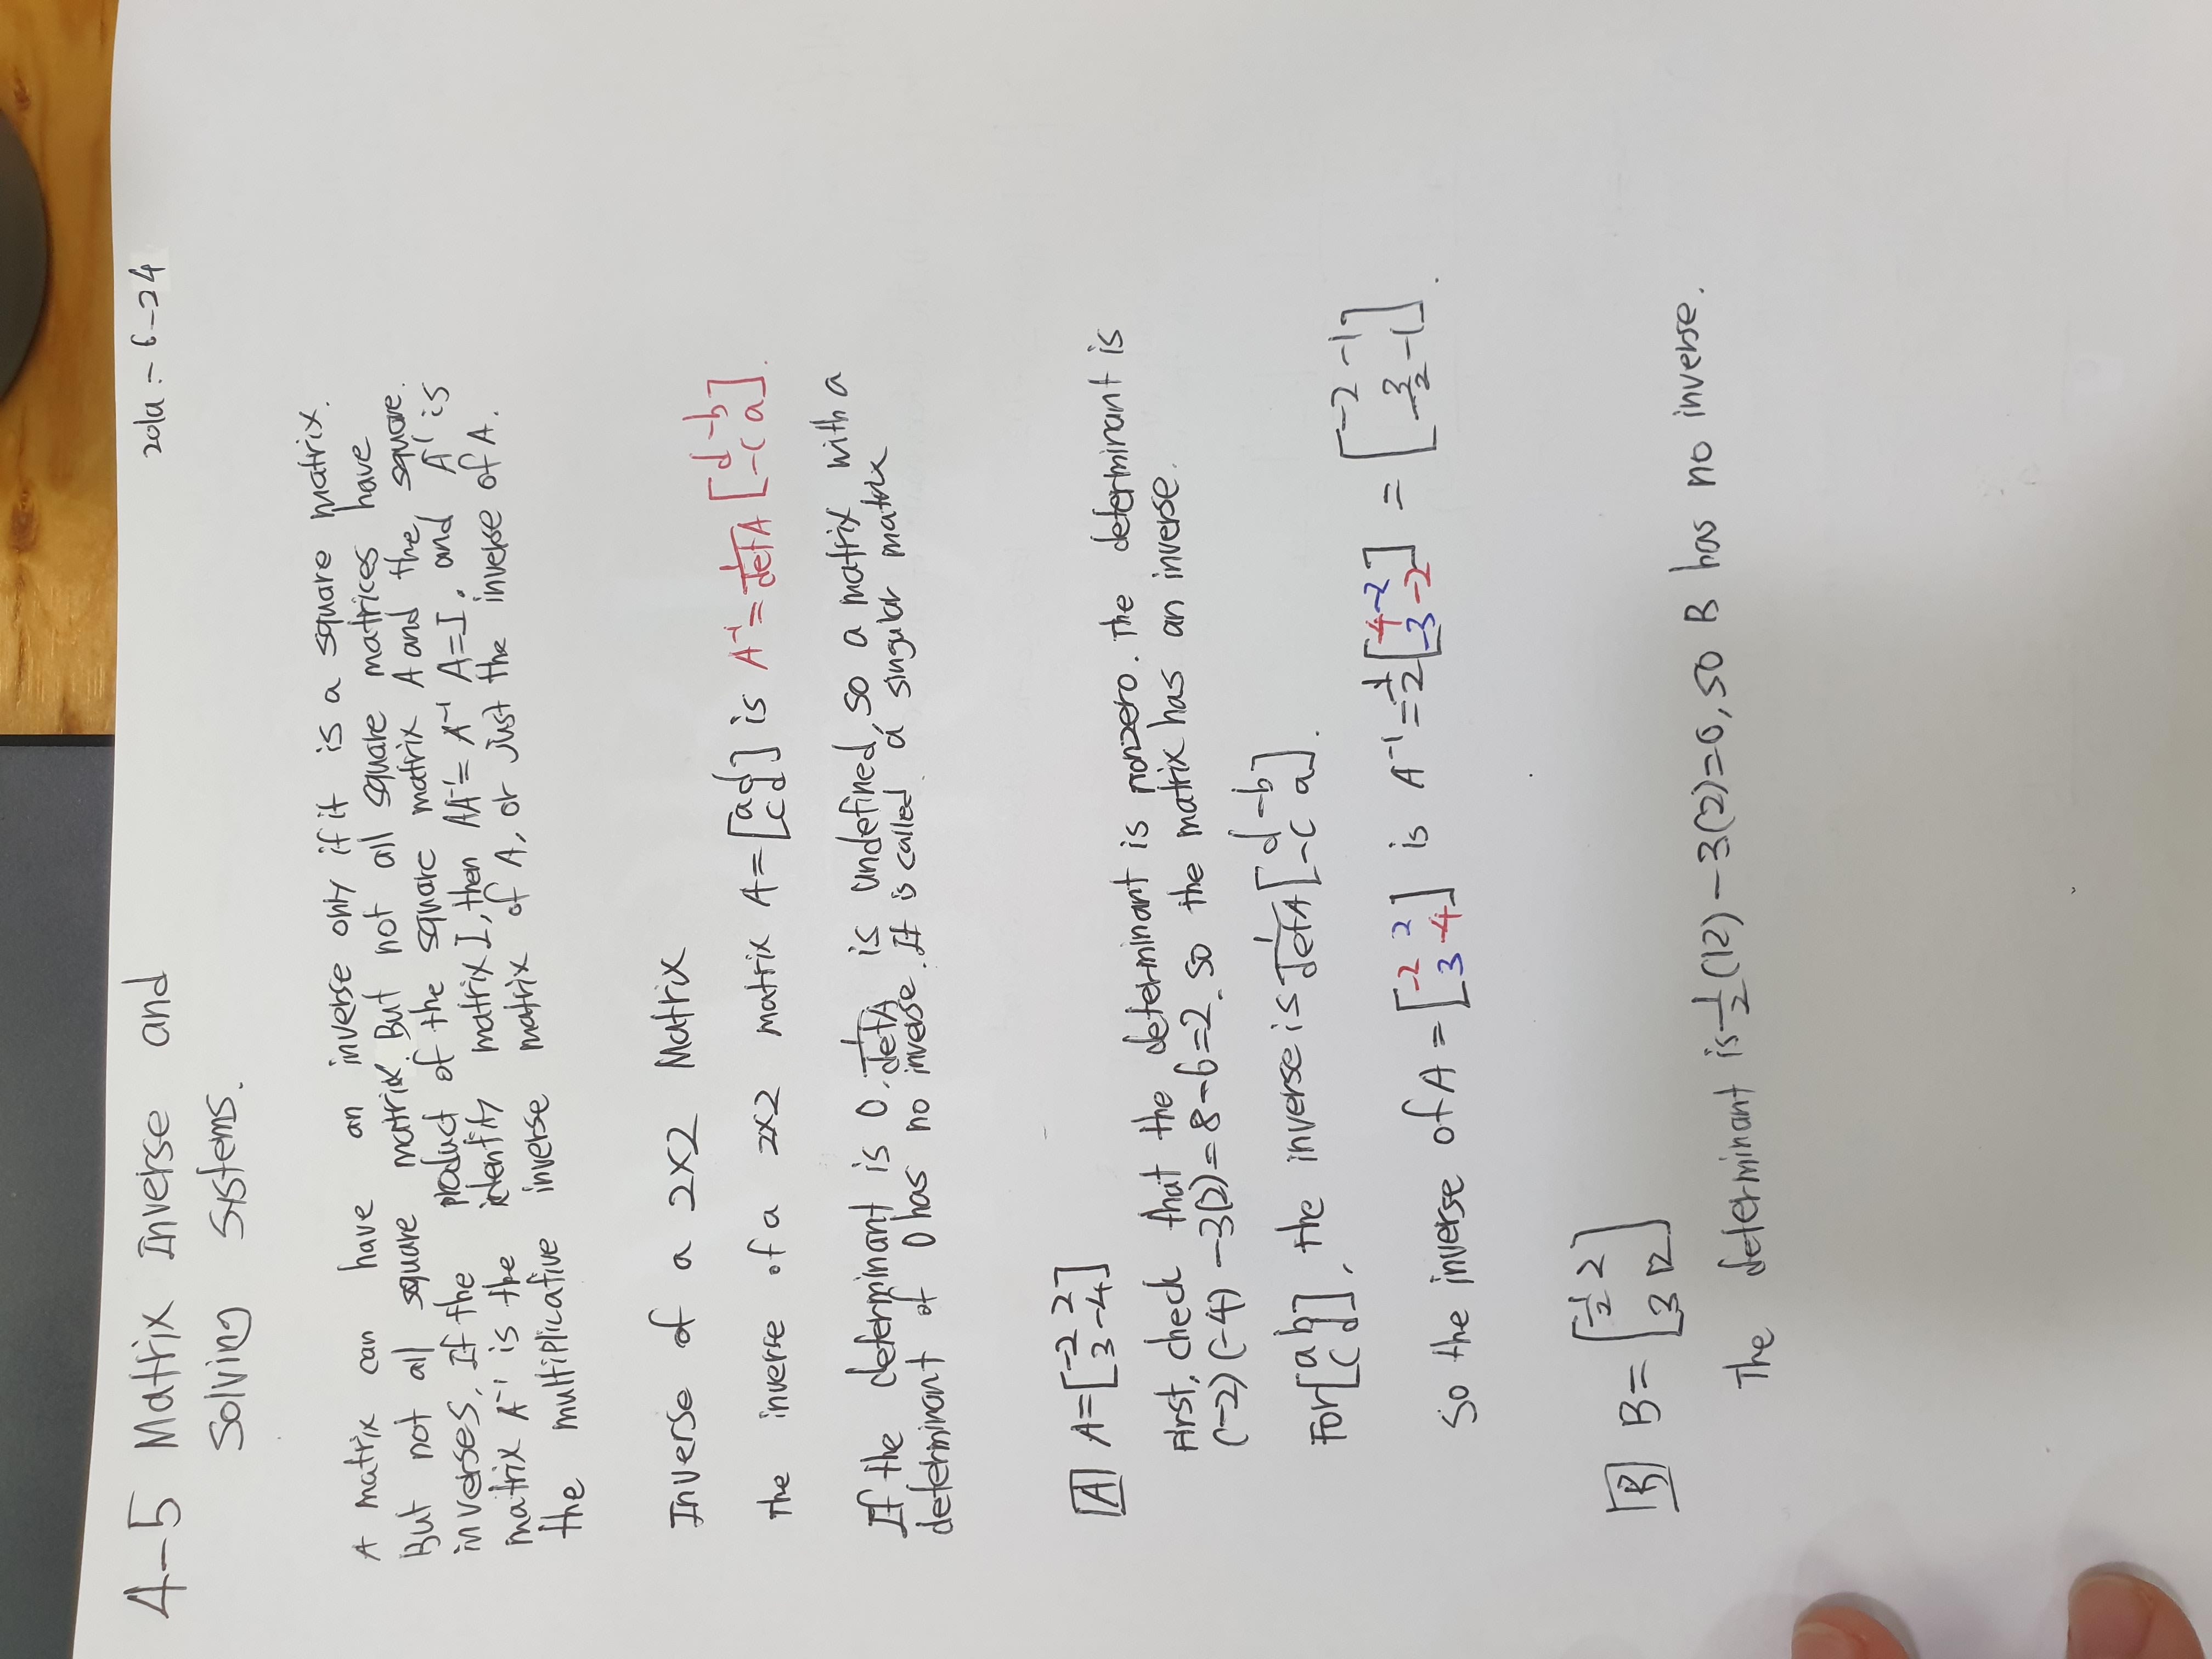 4-5 Matrix Inverse and
Solving Systems.
A matrix can have an inverse only if it is a square matrix.
But not all square matrix. But not all square matrices have
inverses. If the product of the square matrix A and the square
matrix A⁻¹ is the identity matrix I, then AA⁻¹ = A⁻¹ A=I, and A⁻¹ is
the multiplicative inverse matrix of A, or just the inverse of A.
Inverse of a 2×2 Matrix
The inverse of a 2x2 matrix A = [a d; c d] is A⁻¹ = 1/detA [d -b; -c a].
If the determinant is 0, 1/detA is undefined, so a matrix with a
determinant of 0 has no inverse. It is called a singular matrix
A A = [-2 2; 3 -4]
First, check that the determinant is nonzero. The determinant is
(-2)(-4) -3(2) = 8-6=2. So the matrix has an inverse.
For [a b; c d], the inverse is 1/detA [d -b; -c a].
So the inverse of A = [-2 2; 3 4] is A⁻¹ = 1/2 [4 -2; -3 -2] = [-2 -1; -3/2 -1].
B B = [1/2 2; 3 12]
The determinant is 1/2 (12) - 3(2)=0, so B has no inverse.